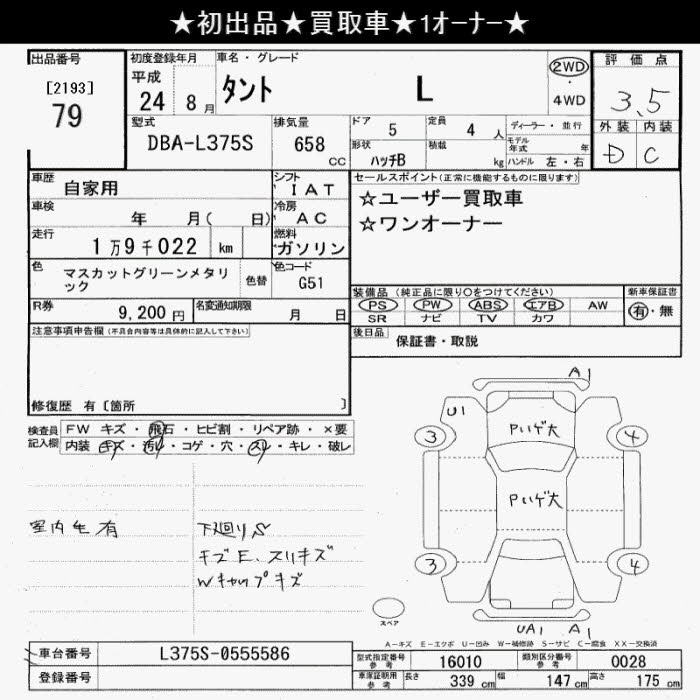 ★初出品★買取車★1オーナー★
出品番号
[2193]
79
初度登録年月
平成
24年 8月
車名・グレード
タント L
2WD
・
4WD
評価点
3.5
外装 内装
D C
型式
DBA-L375S
排気量
658
CC
ドア
5
定員
4 人
ディーラー・並行
形状
ハッチB
積載
kg
モデル年式 年
ハンドル 左・右
車歴
自家用
シフト
IAT
車検
年 月( 日)
冷房
AC
走行
1万9千022 km
燃料
ガソリン
色
マスカットグリーンメタリック
色替
色コード
G51
R券
9,200 円
名変通知期限
月 日
セールスポイント(正常に機能するものに限ります)
☆ユーザー買取車
☆ワンオーナー
装備品 (純正品に限り○をつけてください)
PS PW ABS エアB AW
SR ナビ TV カワ
新車保証書
有・無
後日品
保証書・取説
注意事項申告欄(不具合内容等は具体的に記入して下さい)
修復歴 有〔箇所 〕
検査員記入欄
FW キズ・飛石・ヒビ割・リペア跡・×要
内装 キズ・汚れ・コゲ・穴・スレ・キレ・破レ
室内 有
下廻りS
キズE、スリキズ
Wキャップキズ
A1
U1
3
4
Pいゲ大
Pいゲ大
3
4
スペア
UA1 A1
A−キズ E−エクボ U−凹み W−補修跡 S−サビ C−腐食 XX−交換済
車台番号
L375S-0555586
登録番号
型式指定番号
参考
16010
類別区分番号
参考
0028
車庫証明用
参考
長さ
339 cm
幅
147 cm
高さ
175 cm